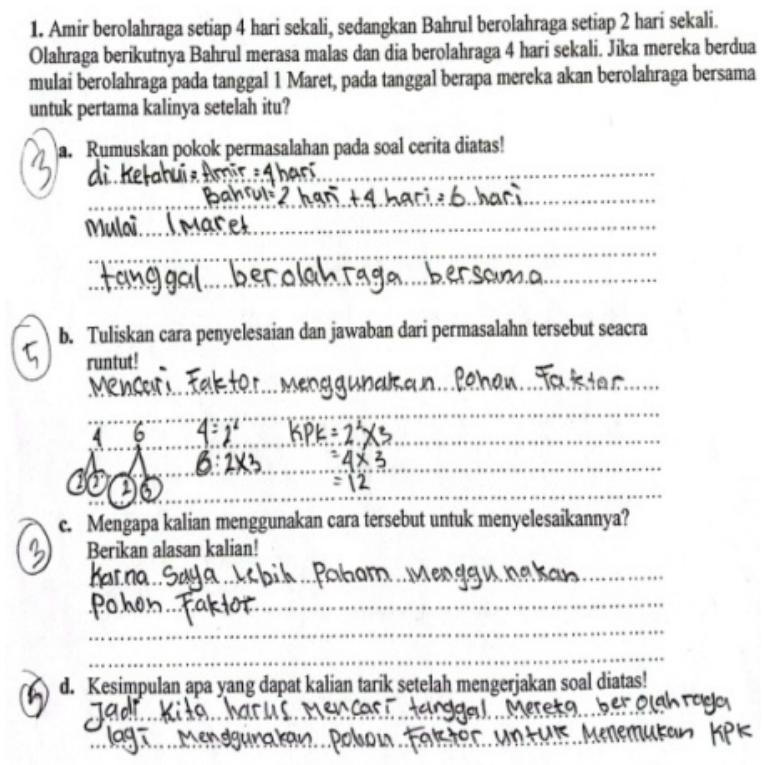 1. Amir berolahraga setiap 4 hari sekali, sedangkan Bahrul berolahraga setiap 2 hari sekali.
Olahraga berikutnya Bahrul merasa malas dan dia berolahraga 4 hari sekali. Jika mereka berdua
mulai berolahraga pada tanggal 1 Maret, pada tanggal berapa mereka akan berolahraga bersama
untuk pertama kalinya setelah itu?
3 a. Rumuskan pokok permasalahan pada soal cerita diatas!
di ketahui = Amir = 4 hari
Bahrul = 2 hari + 4 hari = 6 hari
Mulai 1 Maret
tanggal berolahraga bersama
5 b. Tuliskan cara penyelesaian dan jawaban dari permasalahn tersebut seacra
runtut!
Mencari Faktor menggunakan Pohon Faktor
4 6 4 = 2² KPK = 2² x 3
2 2 2 3 6 = 2x3 = 4 x 3
= 12
3 c. Mengapa kalian menggunakan cara tersebut untuk menyelesaikannya?
Berikan alasan kalian!
Karna Saya Lebih Paham Menggunakan
Pohon Faktor
5 d. Kesimpulan apa yang dapat kalian tarik setelah mengerjakan soal diatas!
Jadi Kita harus Mencari tanggal Mereka berolahraga
lagi Menggunakan Pohon Faktor untuk Menemukan KPK